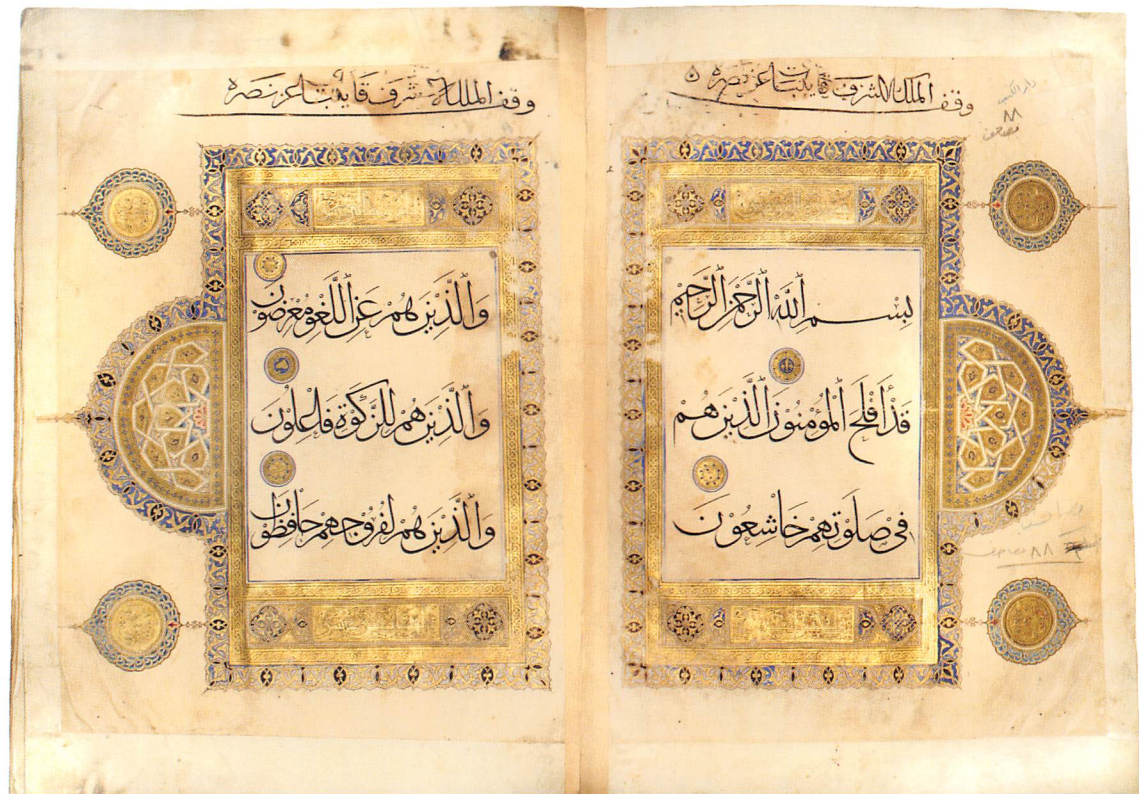 وقف الملك الاشرف قايتباي عز نصره
دار الكتب
٨٨
مصاحف
بِسْمِ ٱللَّهِ ٱلرَّحْمَٰنِ ٱلرَّحِيمِ
قَدْ أَفْلَحَ ٱلْمُؤْمِنُونَ ٱلَّذِينَ هُمْ
فِي صَلَوٰتِهِمْ خَاشِعُونَ
٨٨ مصاحف
وقف الملك الاشرف قايتباي عز نصره
وَٱلَّذِينَ هُمْ عَنِ ٱللَّغْوِ مُعْرِضُونَ
وَٱلَّذِينَ هُمْ لِلزَّكَوٰةِ فَاعِلُونَ
وَٱلَّذِينَ هُمْ لِفُرُوجِهِمْ حَافِظُونَ